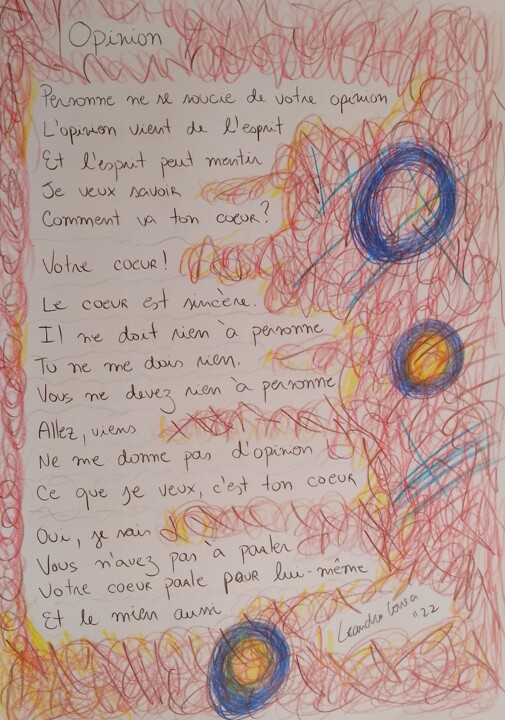 Opinion
Personne ne se soucie de votre opinion
L'opinion vient de l'esprit
Et l'esprit peut mentir
Je veux savoir
Comment va ton coeur?
Votre coeur!
Le coeur est sincère.
Il ne doit rien à personne
Tu ne me dois rien.
Vous ne devez rien à personne
Allez, viens
Ne me donne pas d'opinion
Ce que je veux, c'est ton coeur
Oui, je sais
Vous n'avez pas à parler
Votre coeur parle pour lui-même
Et le mien aussi
Leandro
"22